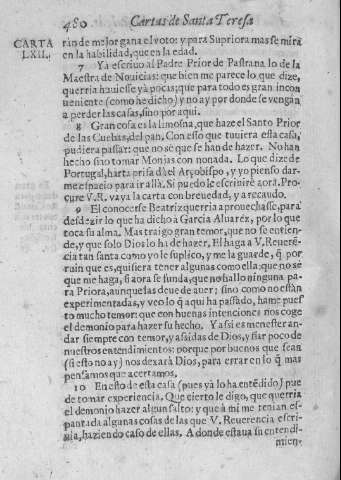 480 Cartas de Santa Teresa
CARTA LXII.
ràn de mejor gana el voto: y para Supriora mas se mira
en la habilidad, que en la edad.
7 Ya escriuo al Padre Prior de Pastrana lo de la
Maestra de Nouicias: que bien me parece lo que dize,
querria huuiesse yà pocas; que para todo es gran incon
ueniente (como he dicho) y no ay por donde se vengan
a perder las casas, sino por aqui.
8 Gran cosa es la limosna, que haze el Santo Prior
de las Cuebas, del pan. Con esso que tuuiera esta casa,
pudiera passar: que no sè que se han de hazer. No han
hecho sino tomar Monjas con nonada. Lo que dize de
Portugal, harta prisa dà el Arçobispo, y yo pienso dar-
me espacio para ir allà. Si puedo le escriuirè aora. Pro-
cure V.R. vaya la carta con breuedad, y a recaudo.
9 El conocerse Beatriz querria aprouechasse, para
desdezir lo que ha dicho à Garcia Aluarez, por lo que
toca su alma. Mas traigo gran temor, que no se entien-
de, y que solo Dios lo ha de hazer. El haga a V. Reuerē-
cia tan santa como yo le suplico, y me la guarde, q̃ por
ruin que es, quisiera tener algunas como ella: que no sè
que me haga, si aora se funda, que no hallo ninguna pa-
ra Priora, aunque las deue de auer; sino como no estàn
experimentadas, y veo lo q̃ aqui ha passado, hame pues-
to mucho temor: que con buenas intenciones nos coge
el demonio para hazer su hecho. Y assi es menester an-
dar siempre con temor, y asidas de Dios, y fiar poco de
nuestros entendimientos: porque por buenos que sean
(si esto no ay) nos dexarà Dios, para errar en lo q̃ mas
pensamos que acertamos.
10 En esto de esta casa (pues yà lo ha entēdido) pue
de tomar experiencia. Que cierto le digo, que querria
el demonio hazer algun salto: y que à mi me tenian es-
pantada algunas cosas de las que V. Reuerencia escri-
uia, haziendo caso de ellas. A donde estaua su entendi-
mien-